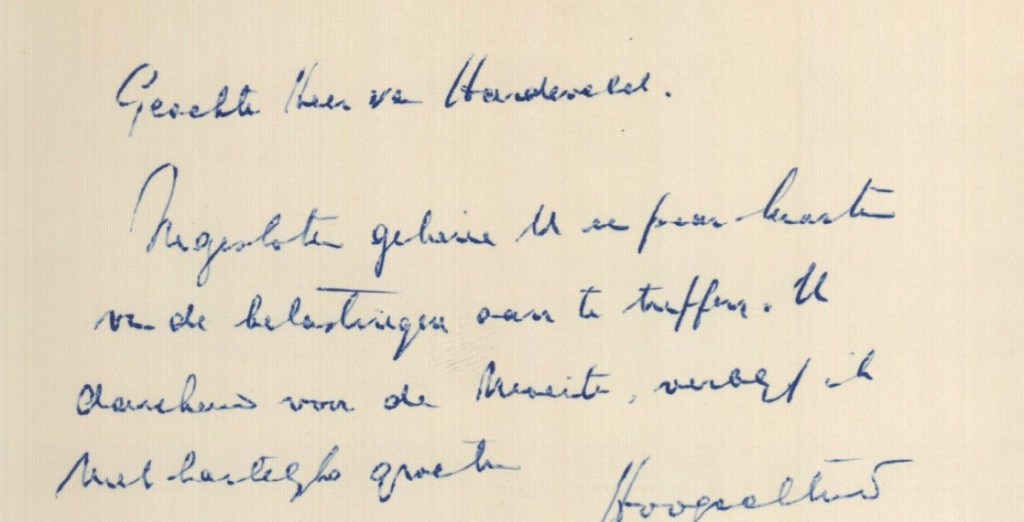 Geachte Heer van Hardeveld.
Ingesloten gelieve U een paar kaarten
van de belastingen aan te treffen. U
dankend voor de moeite, verblijf ik
met hartelijke groeten